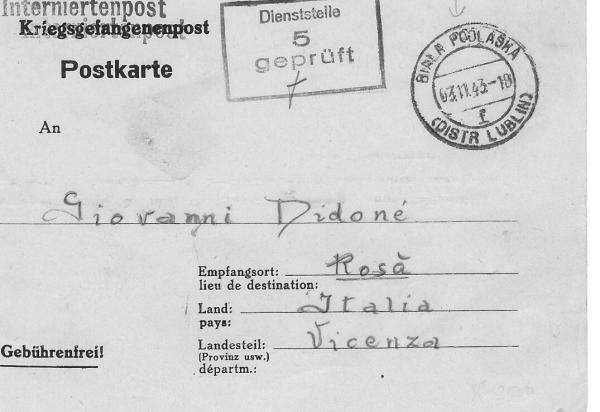 Interniertenpost
Kriegsgefangenenpost
Postkarte
Dienststelle
5
geprüft
BIAŁA PODLASKA
03.11.43-18
f
(DISTR LUBLIN)
An
Giovanni Didoné
Empfangsort: Rosà
lieu de destination:
Land: Italia
pays:
Landesteil: Vicenza
(Provinz usw.)
départm.:
Gebührenfrei!